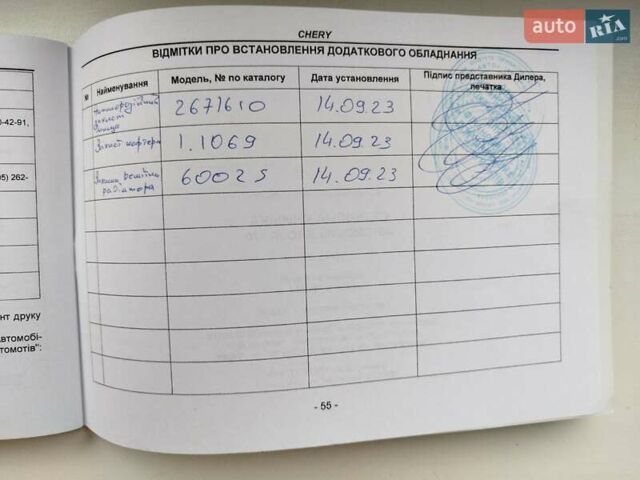 auto RIA.com
CHERY
ВІДМІТКИ ПРО ВСТАНОВЛЕННЯ ДОДАТКОВОГО ОБЛАДНАННЯ
№ Найменування Модель, № по каталогу Дата установлення Підпис представника Дилера, печатка
2671610 14.09.23
Захист картера 1.1069 14.09.23
Захист решітки радіатора 60025 14.09.23
0-42-91,
5) 262-
нт друку
Автомобі-
томотів":
- 55 -